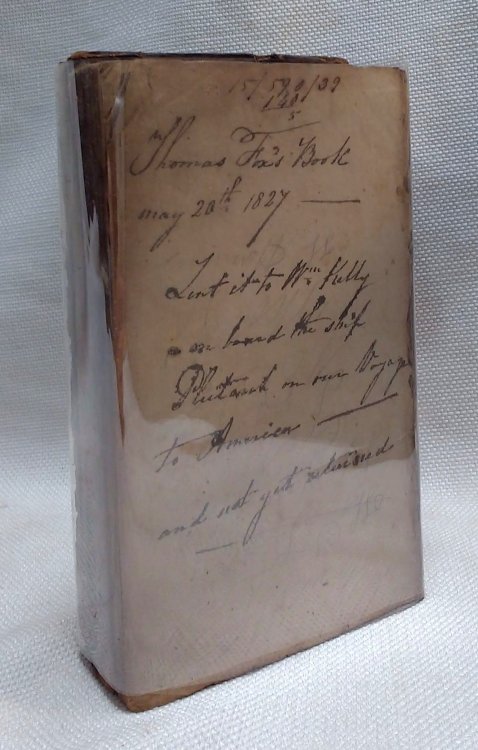 15/590/39
5
Thomas Fox's Book
may 20th 1827 —
Lent it to Wm Kelly
on board the ship
Plutarch on our Voyage
to America —
and not yet returned
—